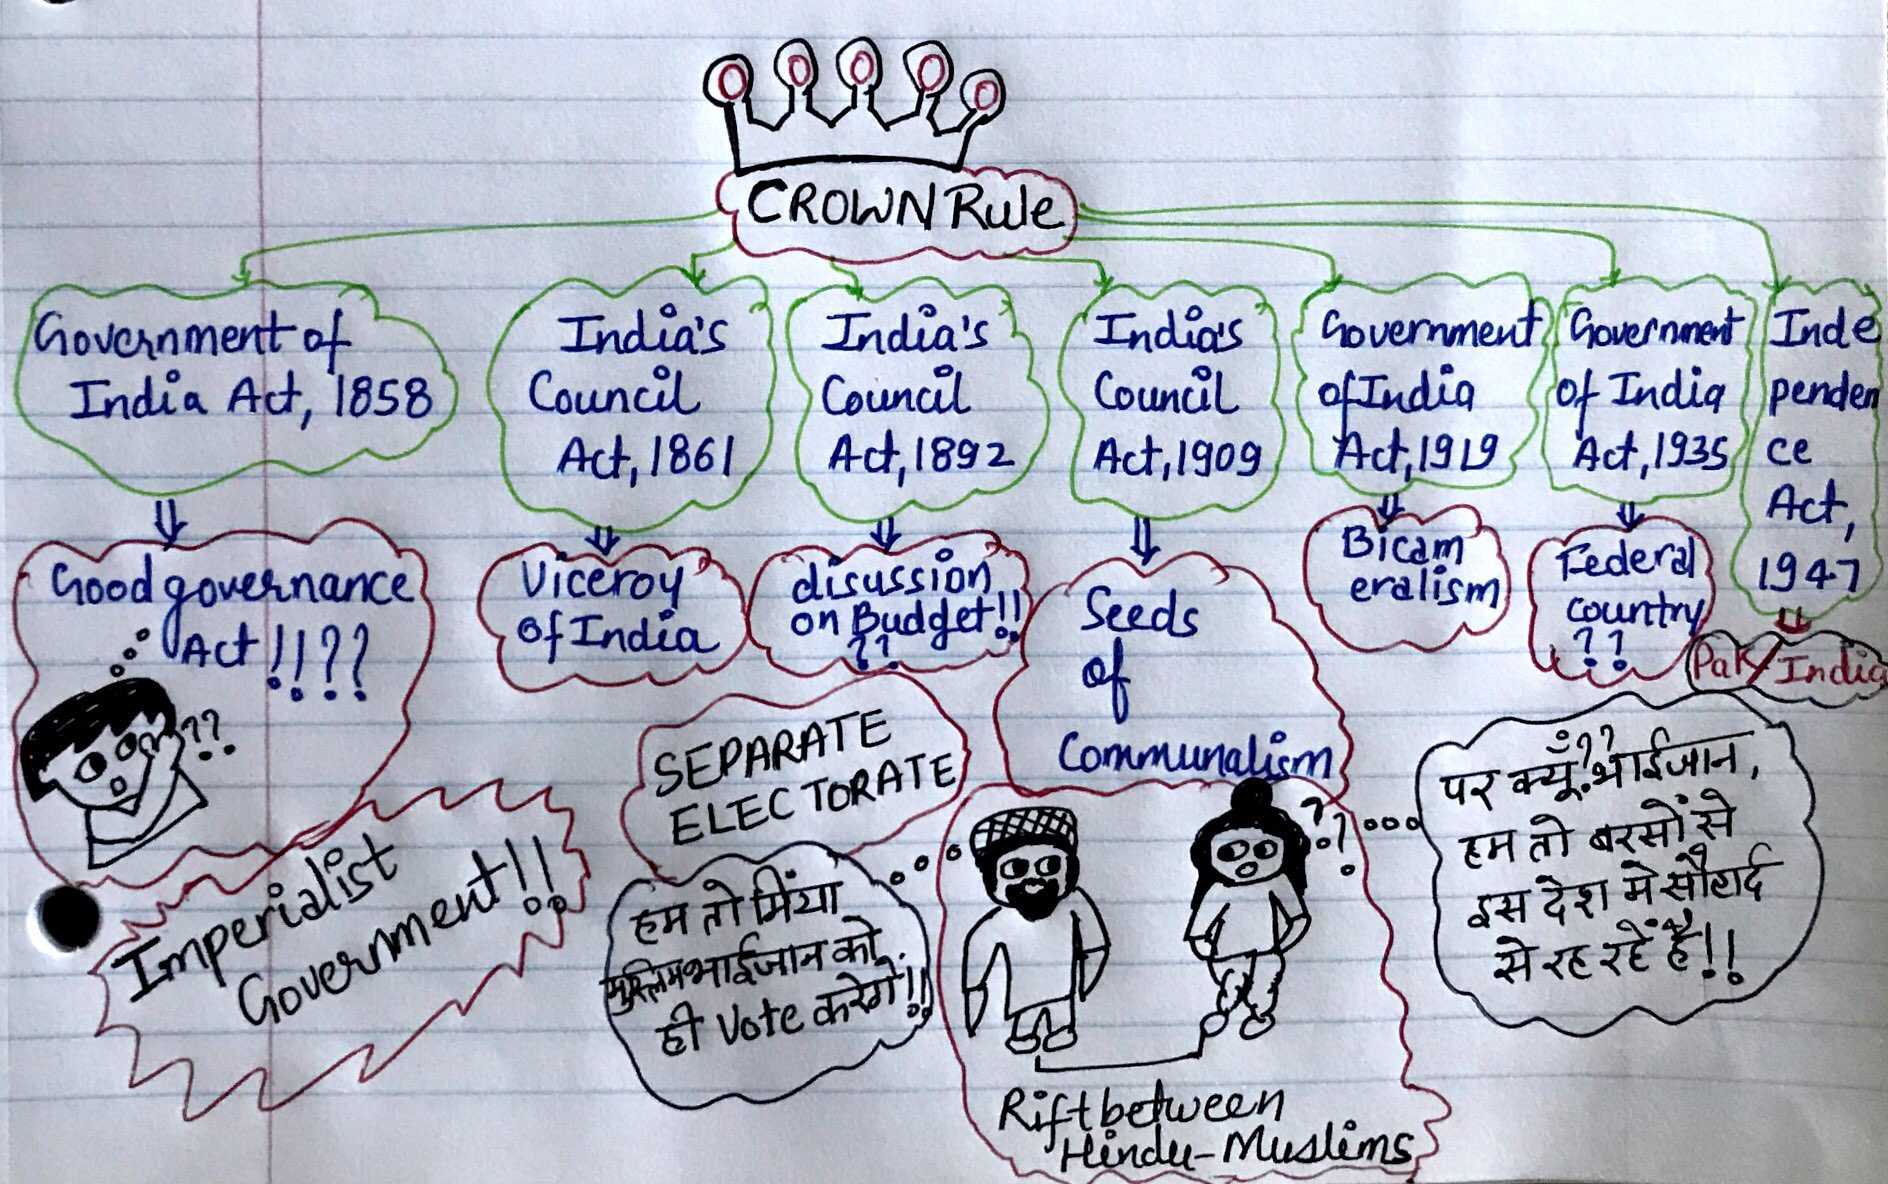 CROWN Rule
Government of
India Act, 1858
India's
Council
Act, 1861
India's
Council
Act, 1892
India's
Council
Act, 1909
Government
of India
Act, 1919
Government
of India
Act, 1935
Inde
penden
ce
Act,
1947
Good governance
Act!!??
??
Imperialist
Government!!
Viceroy
of India
disussion
on Budget!!
??
Seeds
of
Communalism
Bicam
eralism
Federal
country
??
Pak/India
SEPARATE
ELECTORATE
हम तो मिंया
मुस्लिम भाईजान को
ही Vote करेगें!!
??
पर क्यूँ?? भाईजान,
हम तो बरसों से
इस देश मे सौहार्द
से रह रहें है!!
Rift between
Hindu-Muslims